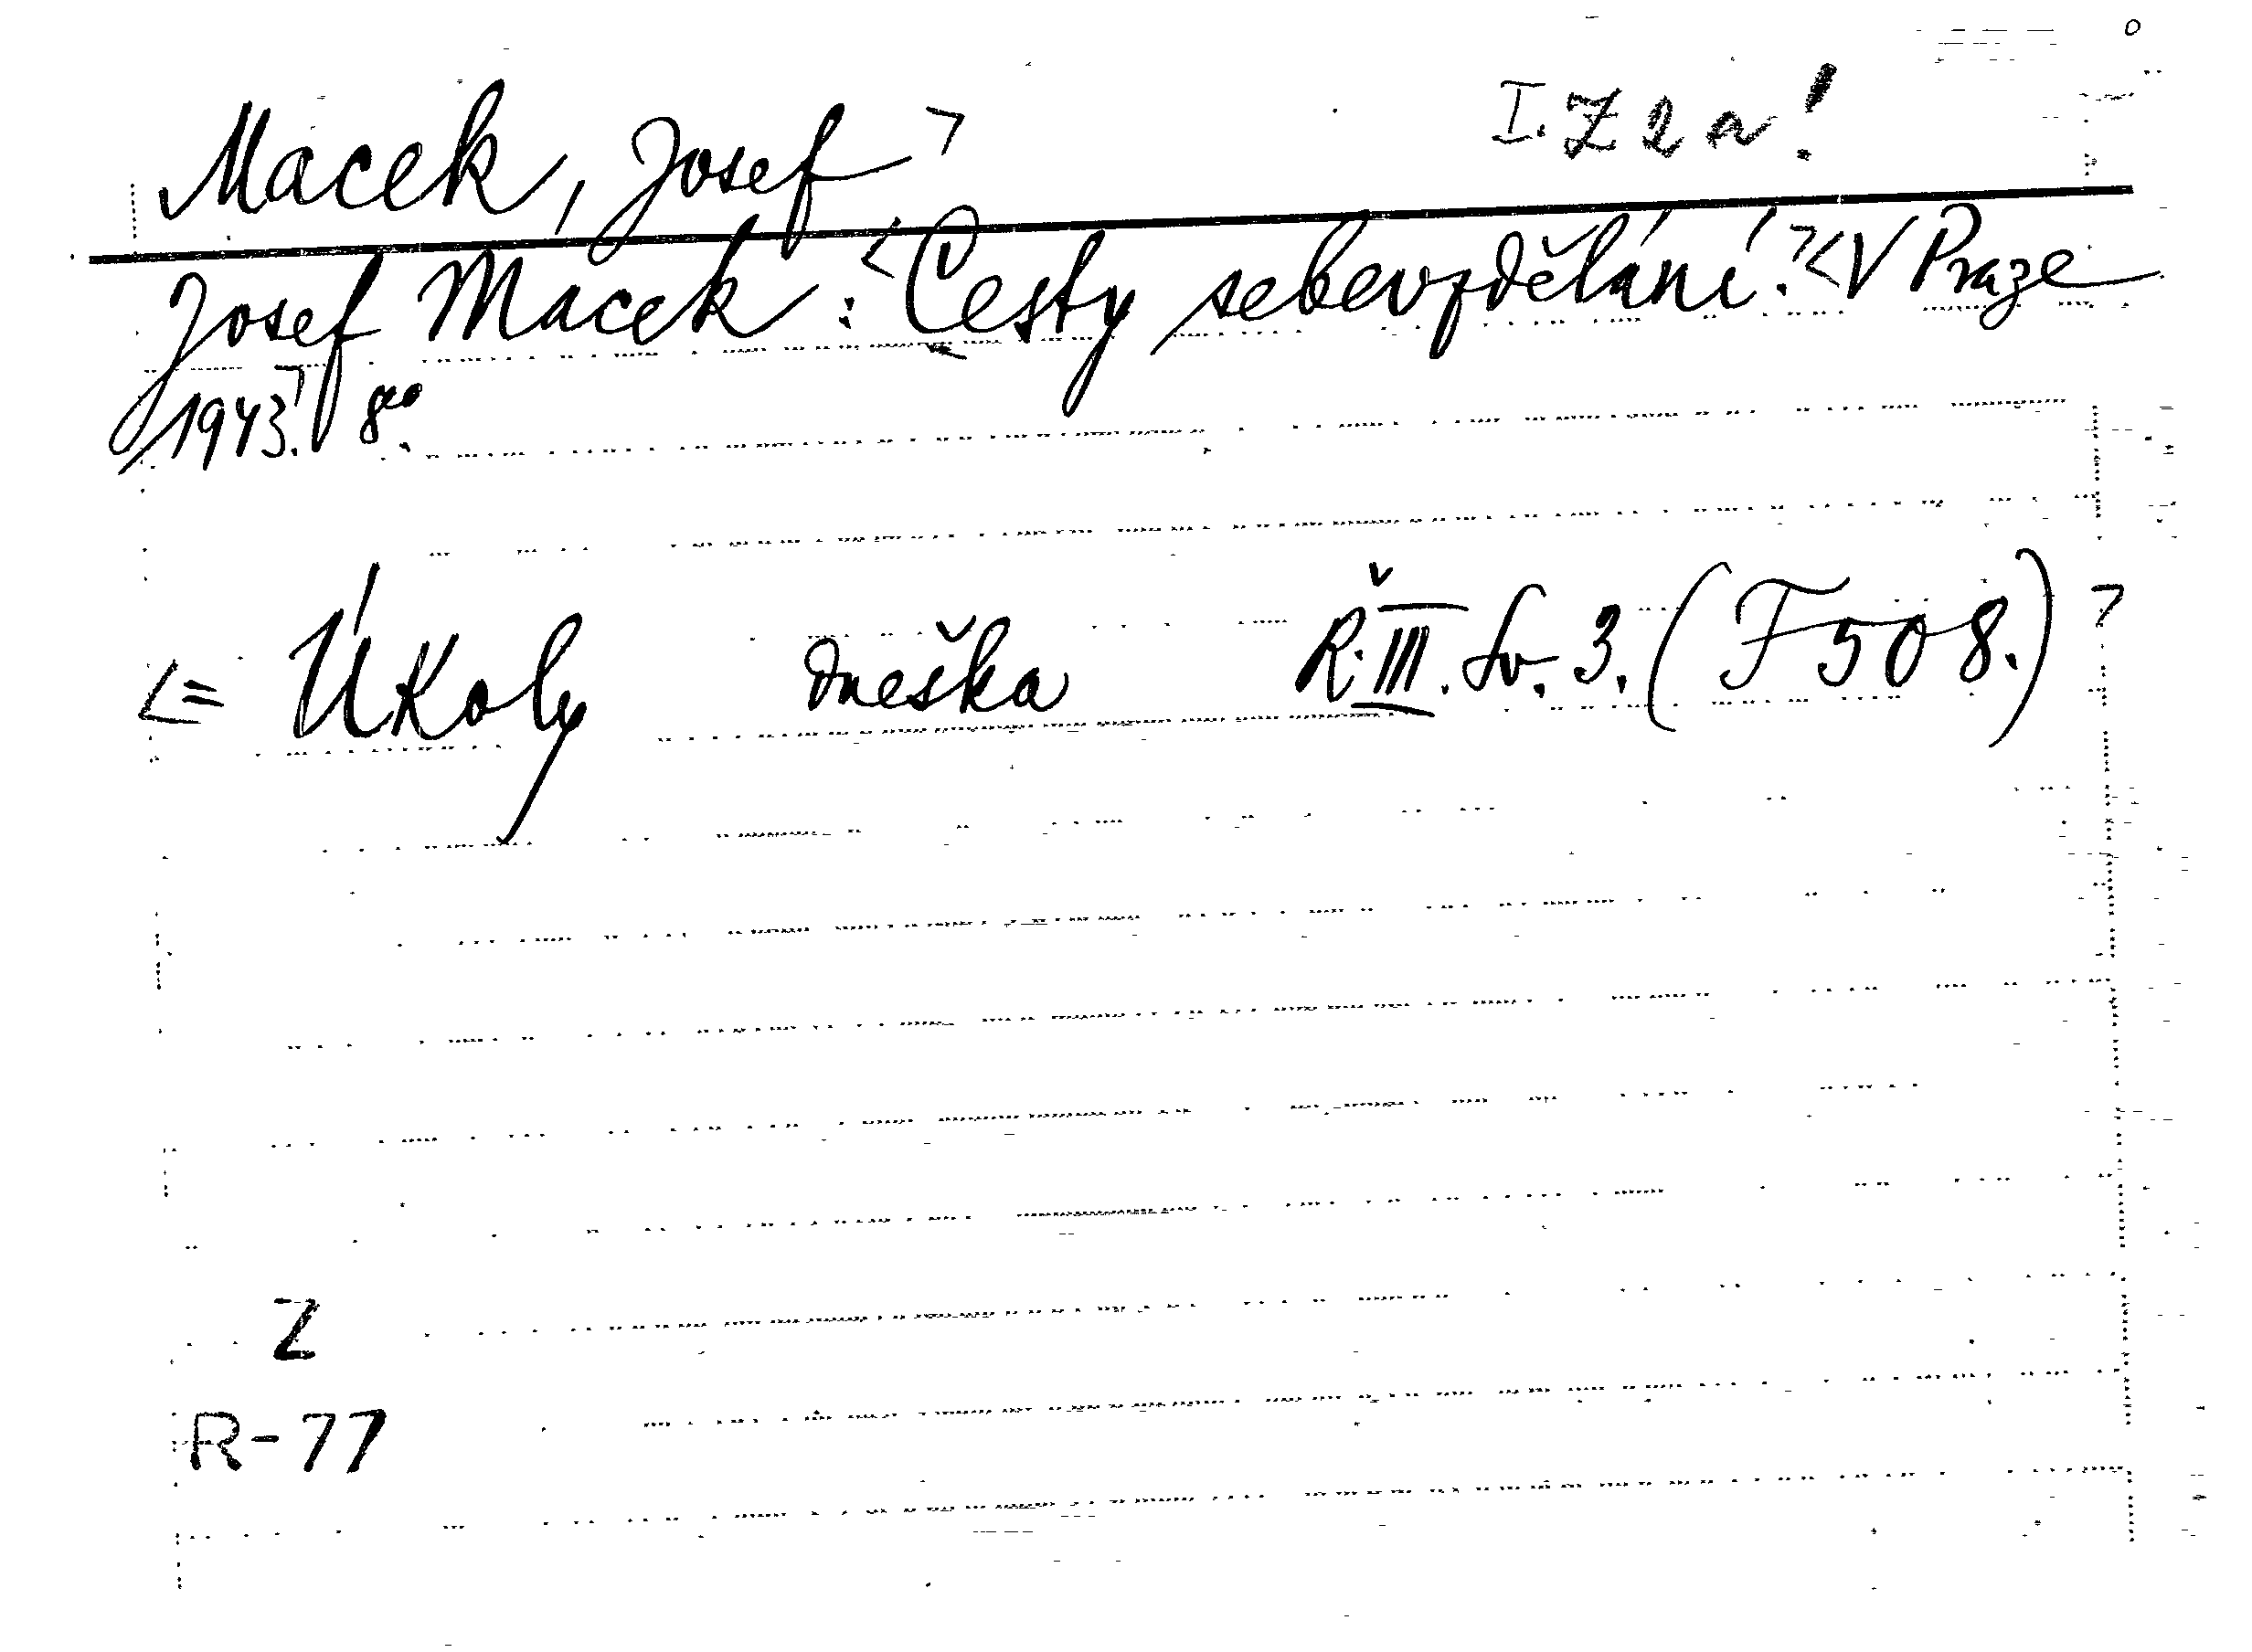 Macek, Josef > I. Z 2 a!
Josef Macek: <Cesty sebevzdělání.><V Praze
1943.> 8°.
<= Úkoly dneška Ř. III. sv. 3. (F 508.) >
Z
R-77